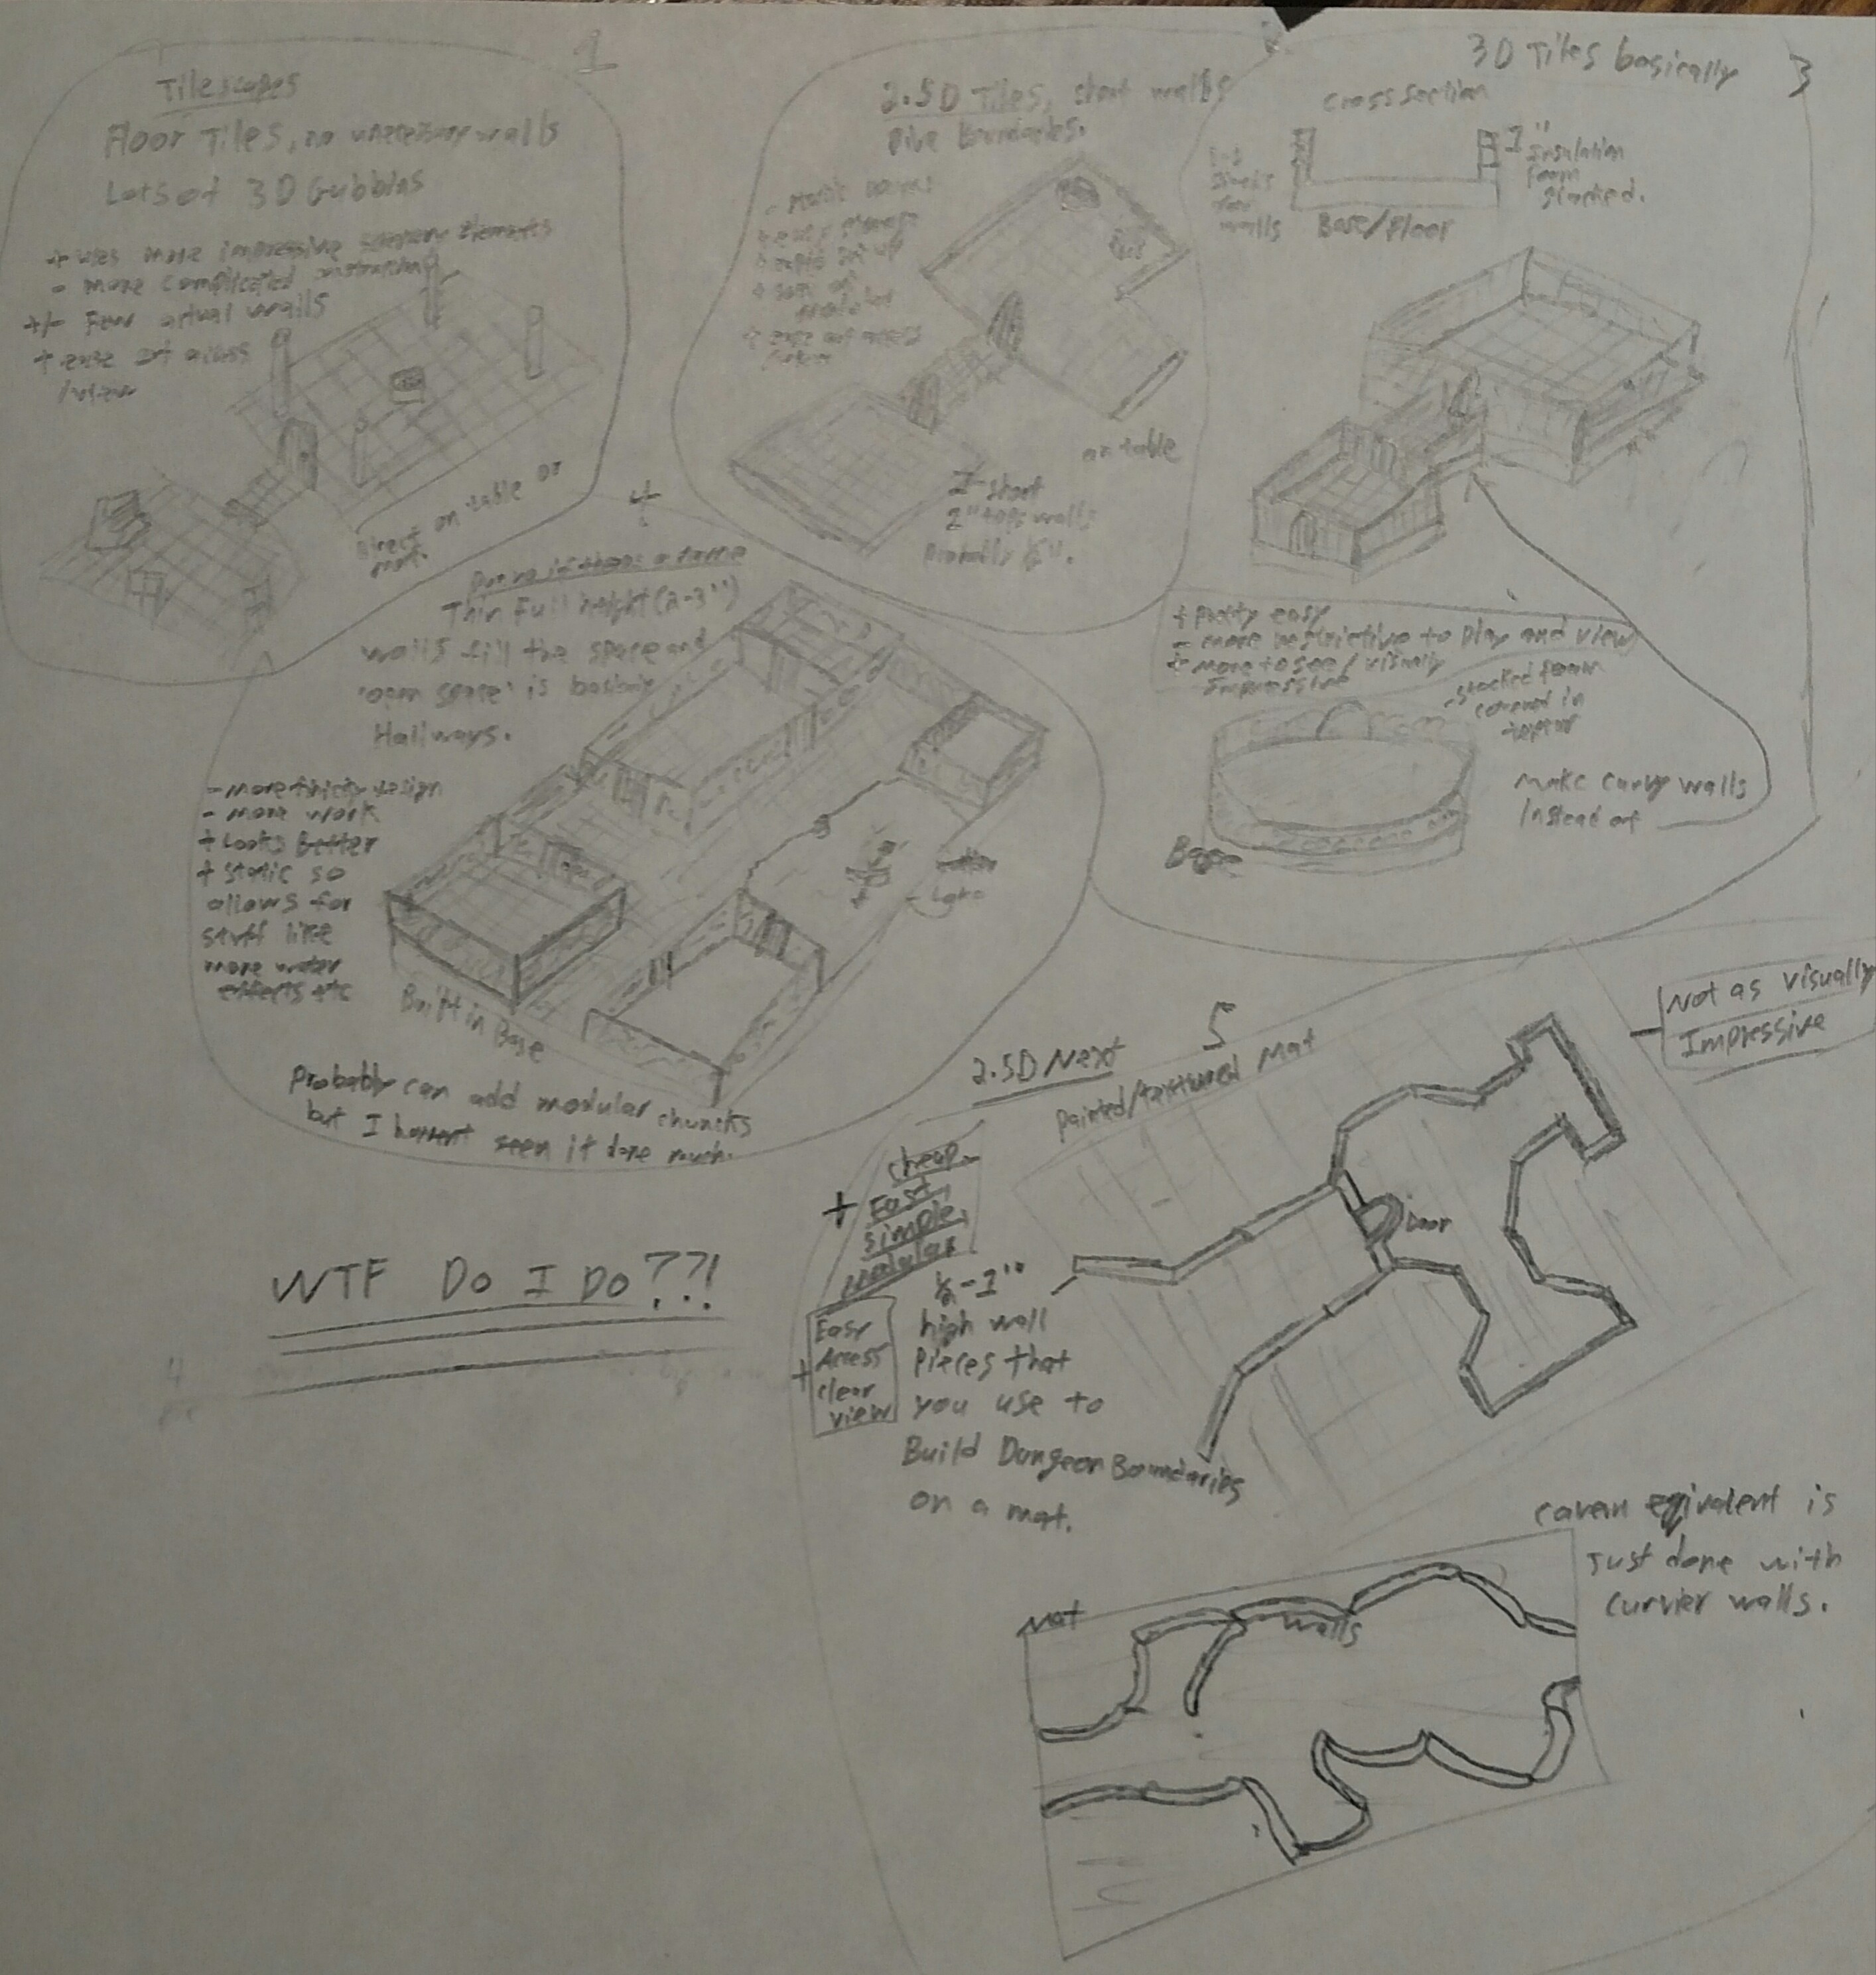 1
Tilescapes
Floor Tiles, no unecessary walls
Lots of 3D Gubbins
+ uses more impressive scenery elements
- more complicated construction
+/- Few actual walls
+ ease of access
/view
Direct on table or
mat.
2.5D Tiles, short walls
Give Boundaries.
on table
short
2" tops walls
Probably ½".
3D Tiles basically 3
cross section
1"
insulation
foam
stacked.
walls
Base/Floor
+ Pretty easy
- more restrictive to play and view
+ more to see/visually
impressive
stacked foam
covered in
Make curvy walls
Instead of
Base
4
Thin Full height (2-3")
walls fill the space and
'open space' is basically
Hallways.
- more design
- more work
+ Looks Better
+ Static so
allows for
stuff like
more water
effects etc
Built in Base
Probably can add modular chuncks
but I havent seen it done much.
WTF Do I Do??!
5
2.5D Next
Painted/textured Mat
- Not as visually
Impressive
+ cheap,
Fast,
simple,
modular
+ Easy
Access
clear
view
½-1"
high wall
Pieces that
you use to
Build Dungeon Boundaries
on a mat.
Door
cavern eqivalent is
Just done with
curvier walls.
Mat
Walls